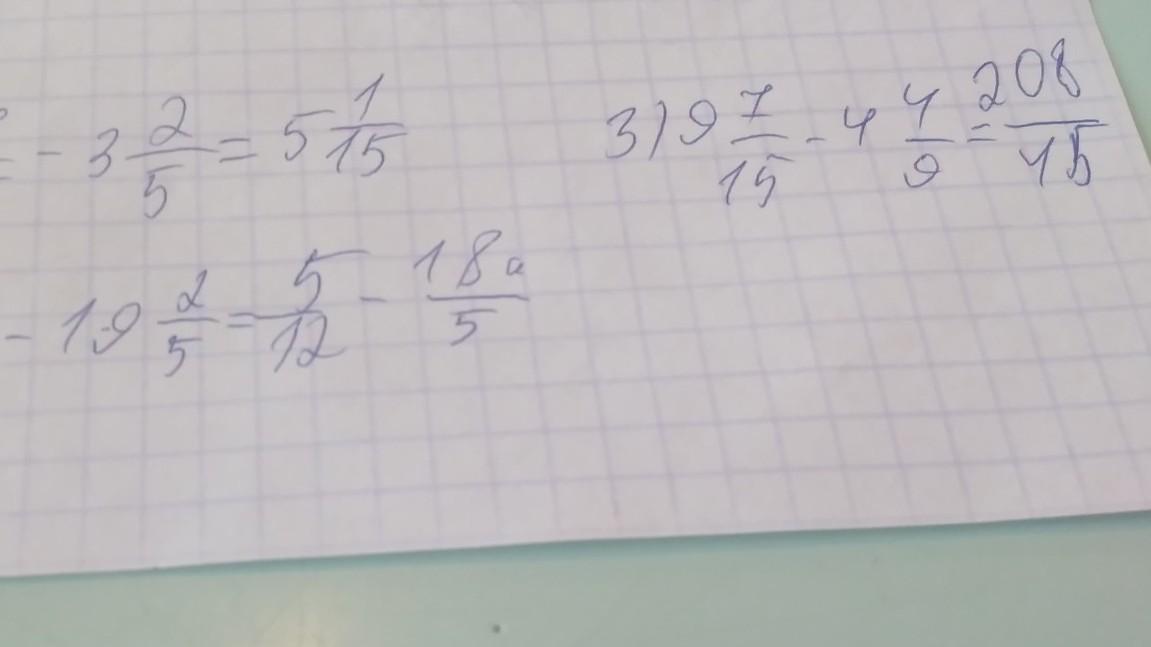 - 3 2/5 = 5 1/15   3) 9 7/15 - 4 4/9 = 208/45
- 19 2/5 = 5/12 - 18a/5